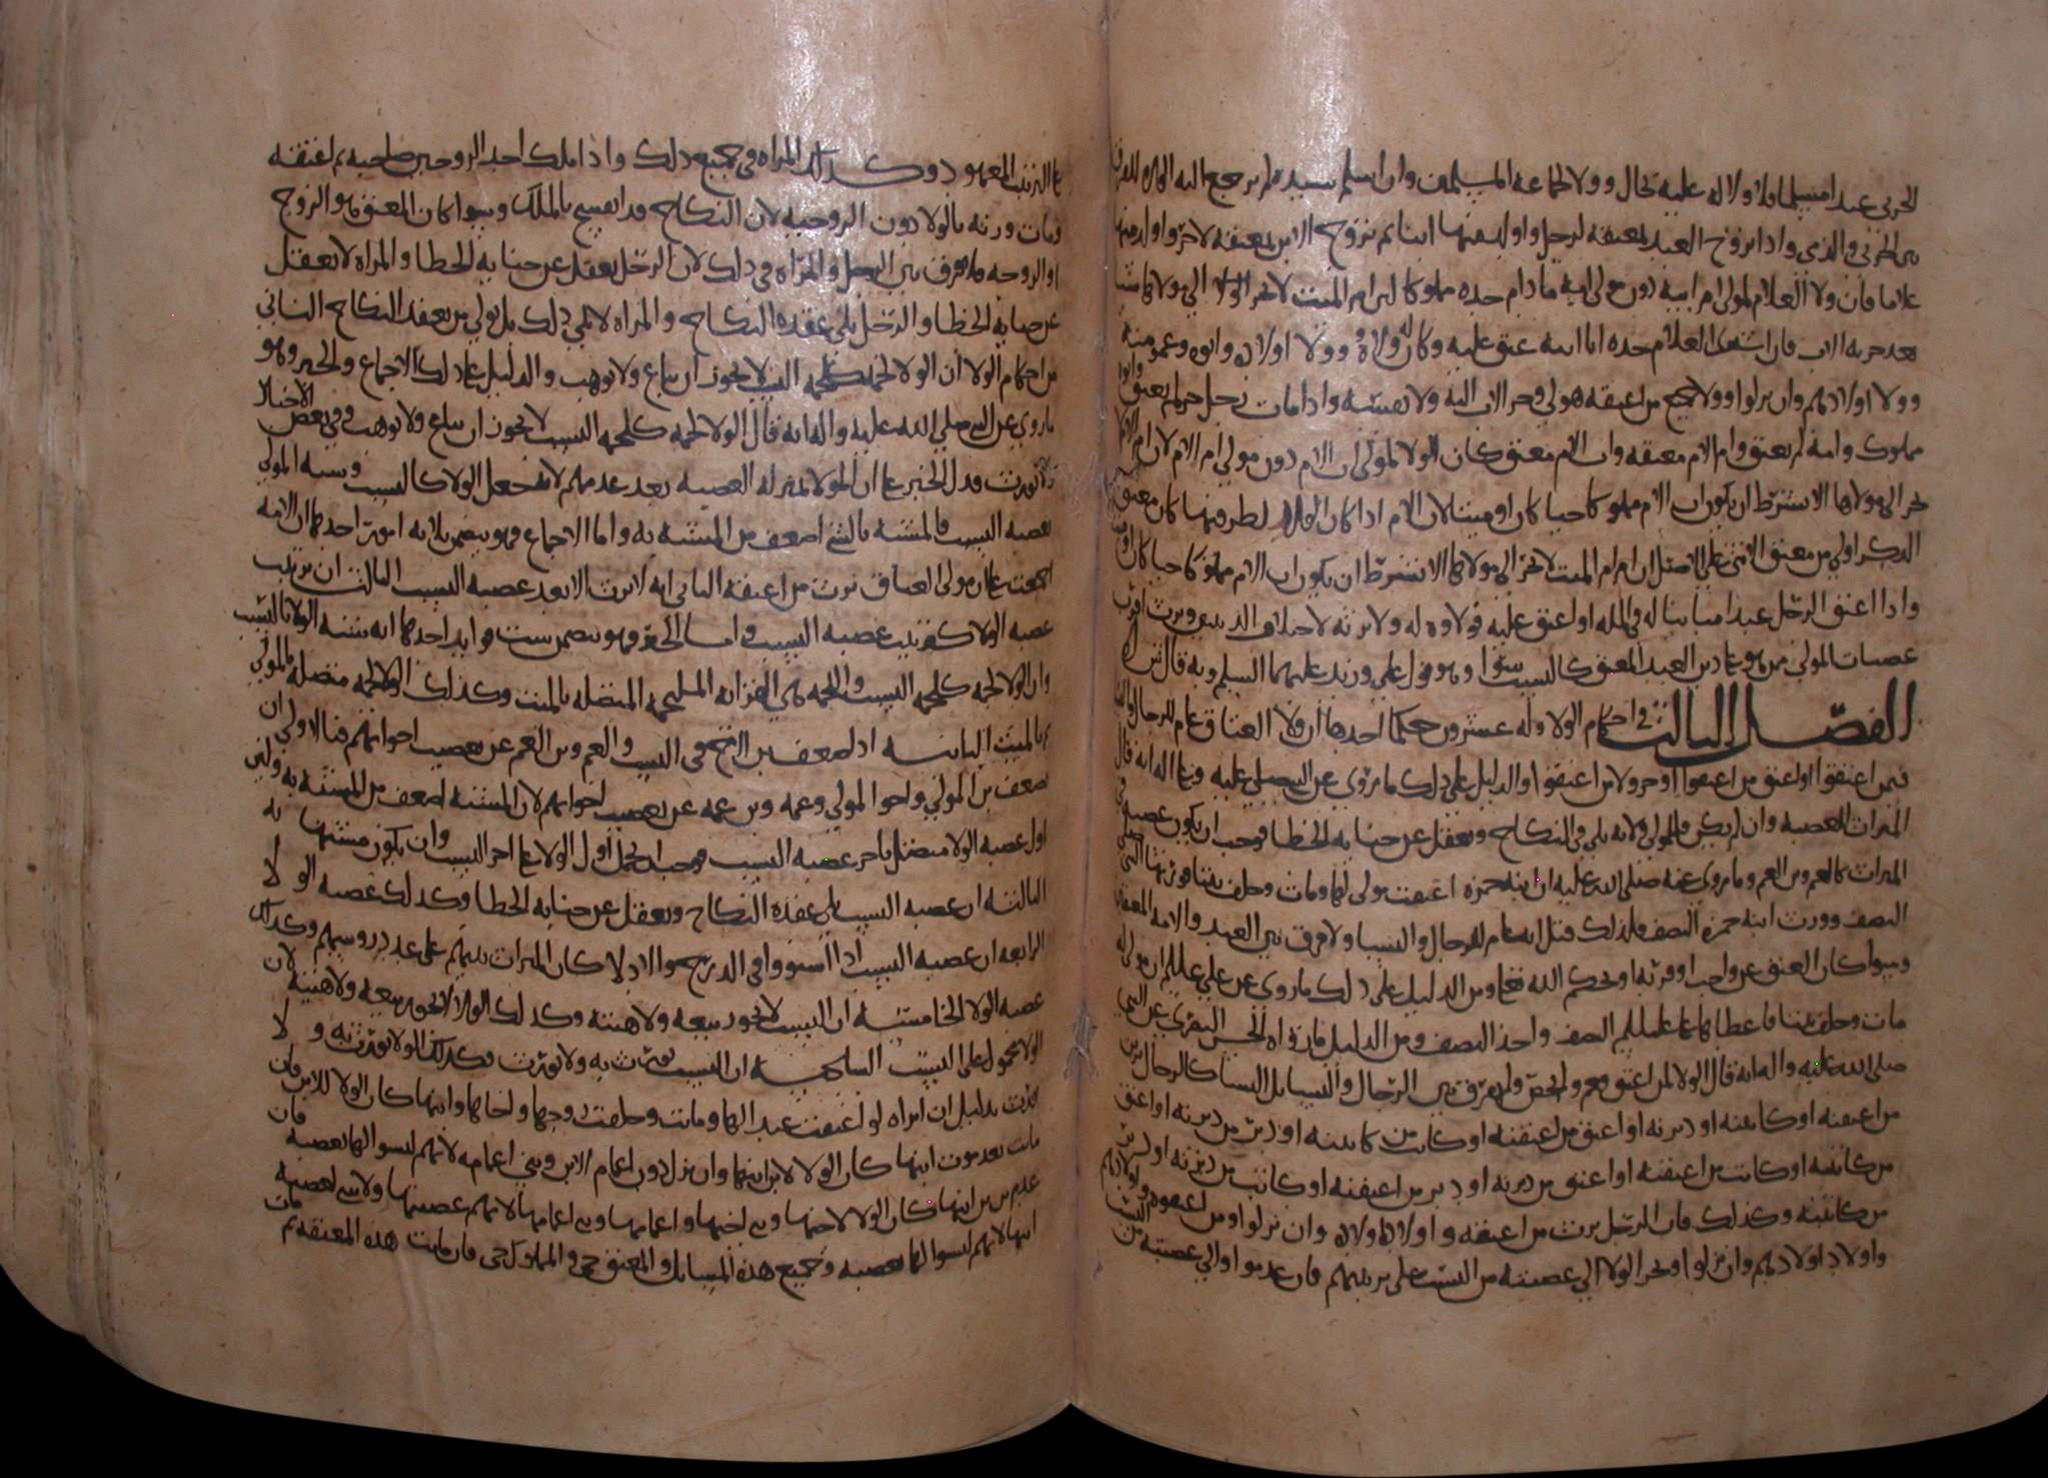 الحربي عبدا مسلما فلا ولاله عليه بحال وولاه لجماعة المسلمين وان اسلم سيده لم يرجع اليه الولا للفرق
بين الحربي والذمي واذا تزوج العبد لمعتقه لرجل واولد منها ابنا ثم تزوج الابن لمعتقه لاخر واولد منها
غلاما فان ولا الغلام لمولى ام ابيه دون مولى امه ما دام جده مملوكا لان ام الميت لا تجر الولا الى مولاها شيا
بعد حرية الاب فان اشترى الغلام جده ابا ابيه عتق عليه وكان له ولاؤه وولا اولاده وابوه وعمومته
وولا اولادهم وان نزلوا وولا جميع من اعتقه هو لي وجر الاب اليه ولا نفسه واذا مات رجل حر لم يعتق وابوه
مملوك وامه لم تعتق وام الام معتقه واب الام معتق كان الولا لمولى اب الام دون مولى ام الام لان ام الام لا
تجر الى مولاها الا بشرط ان يكون اب الام مملوكا حيا كان او ميتا لان الام اذا كان الولا لطرفيها كان معتق
الذكر اولى من معتق الانثى على الاصل ان ام ام الميت لا تجر الى مولاها الا بشرط ان يكون اب الام مملوكا حيا كان او ميتا
واذا اعتق الرجل عبدا مباينا له في المله او اعتق عليه فولاوه له ولا يرثه لاختلاف الدينين ويرث اقرب
عصبات المولى ممن هو على دين العبد المعتق كالنسب سوا وهو قول علي وزيد عليهما السلم وبه قال ش
الفصل الثالث في احكام الولا وله عشرون حكما احدها ان ولا العتاق عام للرجال والنسا
فيمن اعتقوا او اعتق من اعتقوا او جر ولا من اعتقوا والدليل على ذلك ما روي عن النبي صلى الله عليه وعلى اله انه قال
الميراث للعصبه وان لم يكن فالمولى ولانه يلي في النكاح ويعقل عن جنايه الخطا فوجب ان يكون عصبه في
الميراث كالعم وبن العم وما روي عنه صلى الله عليه ان ابنه حمزه اعتقت مولى لها ومات وخلف بنتا فورثها النبي صلى
النصف وورث ابنه حمزه النصف فلذلك قلنا انه عام للرجال والنسا ولا فرق بين العبد والامه المعتقين
وسوا كان العتق عن واجب او قربه او بحكم الله تعالى ومن الدليل على ذلك ما روي عن علي علىلم ان مولى له
مات وخلف بنتا فاعطاها علىلم النصف واخذ النصف ومن الدليل ما رواه الحسن البصري عن النبي
صلى الله عليه واله انه قال الولا لمن اعتق فعم ولم يخص ولم يفرق بين الرجال والنسا بل النسا كالرجال يرثن
من اعتقنه او كاتبنه او دبرنه او اعتق من اعتقنه او كاتب من كاتبنه او دبر من دبرنه او اعتق
من كاتبنه او كاتب من اعتقنه او اعتق من دبرنه او دبر من اعتقنه او كاتب من دبرنه او دبر
من كاتبنه وكذلك فان الرجل يرث من اعتقه واولاده وان نزلوا ومن اعتقوه واولادهم
واولاد اولادهم وان نزلوا ويجر الولا الى عصبته من النسب على ترتيبهم فان عدموا والى عصبته من النسب
على الترتيب المعهود وكذلك المراه في جميع ذلك واذا ملك احد الزوجين صاحبه ثم اعتقه
ومات ورثه بالولا دون الزوجيه لان النكاح قد انفسخ بالملك وسوا كان المعتق هو الزوج
او الزوجه ولم يفرق بين الرجل والمراه في ذلك لان الرجل يعقل عن جنايه الخطا والمراه لا تعقل
عن جنايه الخطا والرجل يلي عقده النكاح والمراه لا تلي ذلك بل تولي من يعقد النكاح الثاني
من احكام الولا ان الولا لحمه كلحمه النسب لا يجوز ان يباع ولا يوهب والدليل على ذلك الاجماع والخبر وهو
ما روي عن النبي صلى الله عليه واله انه قال الولا لحمه كلحمه النسب لا يجوز ان يباع ولا يوهب وفي بعض الاخبار
ولا يورث فدل الخبر على ان الولا بمنزله العصبه بعد عدمهم لانه جعل الولا كالنسب وشبه المولى
بعصبه النسب فالمشبه بالشي اضعف من المشبه به واما الاجماع فهو يتضمن ثلاثه امور احدها ان الامه
اجمعت على ان مولى العتاق يرث من اعتقه الثاني انه لا يرث الا بعد عصبه النسب الثالث ان ترتيب
عصبه الولا كترتيب عصبه النسب واما الخبر فهو يتضمن ست فوايد احدها انه شبه الولا بالنسب
وان الولا لحمه كلحمه النسب واللحمه هي القرابه المسلحمه المتصله بالميت وكذلك الولا لحمه متصله بالمولى
ثم بالميت الثانيه اذا ضعف بن الاخ في النسب والعم وبن العم عن تعصيب اخواتهم فبالاولى ان
يضعف بن المولى واخو المولى وعمه وبن عمه عن تعصيب اخواتهم لان المشبه اضعف من المشبه به وليس
اول عصبه الولا متصل باخر عصبه النسب فوجب ان يحمل اول الولا على اخر النسب وان يكون مشبها به
الثالثه ان عصبه النسب تلي عقده النكاح وتعقل عن جنايه الخطا وكذلك عصبه الولا
الرابعه ان عصبه النسب اذا استووا في الدرج والادلا كان الميراث بينهم على عدد روسهم وكذلك
عصبه الولا الخامسه ان النسب لا يجوز بيعه ولا هبته وكذلك الولا لا يجوز بيعه ولا هبته لان
الولا محمول على النسب السادسه ان النسب يورث به ولا يورث وكذلك الولا يورث به ولا
يورث بدليل ان امراه لو اعتقت عبدا لها وماتت وخلفت زوجها واخاها وابنها كان الولا للابن فان
مات بعد موت ابنها كان الولا لابن ابنها وان نزل دون اعمام الابن وبني اعمامه لانهم ليسوا لها بعصبه فان
عدم بن بن ابنها كان الولا لاخيها وبني اخيها واعمامها وبني اعمامها لانهم عصبتها ولا شي لعصبه
ابنها لانهم ليسوا لها بعصبه وجميع هذه المسايل والمعتق حي والمملوك حي فان ماتت هذه المعتقه ثم مات